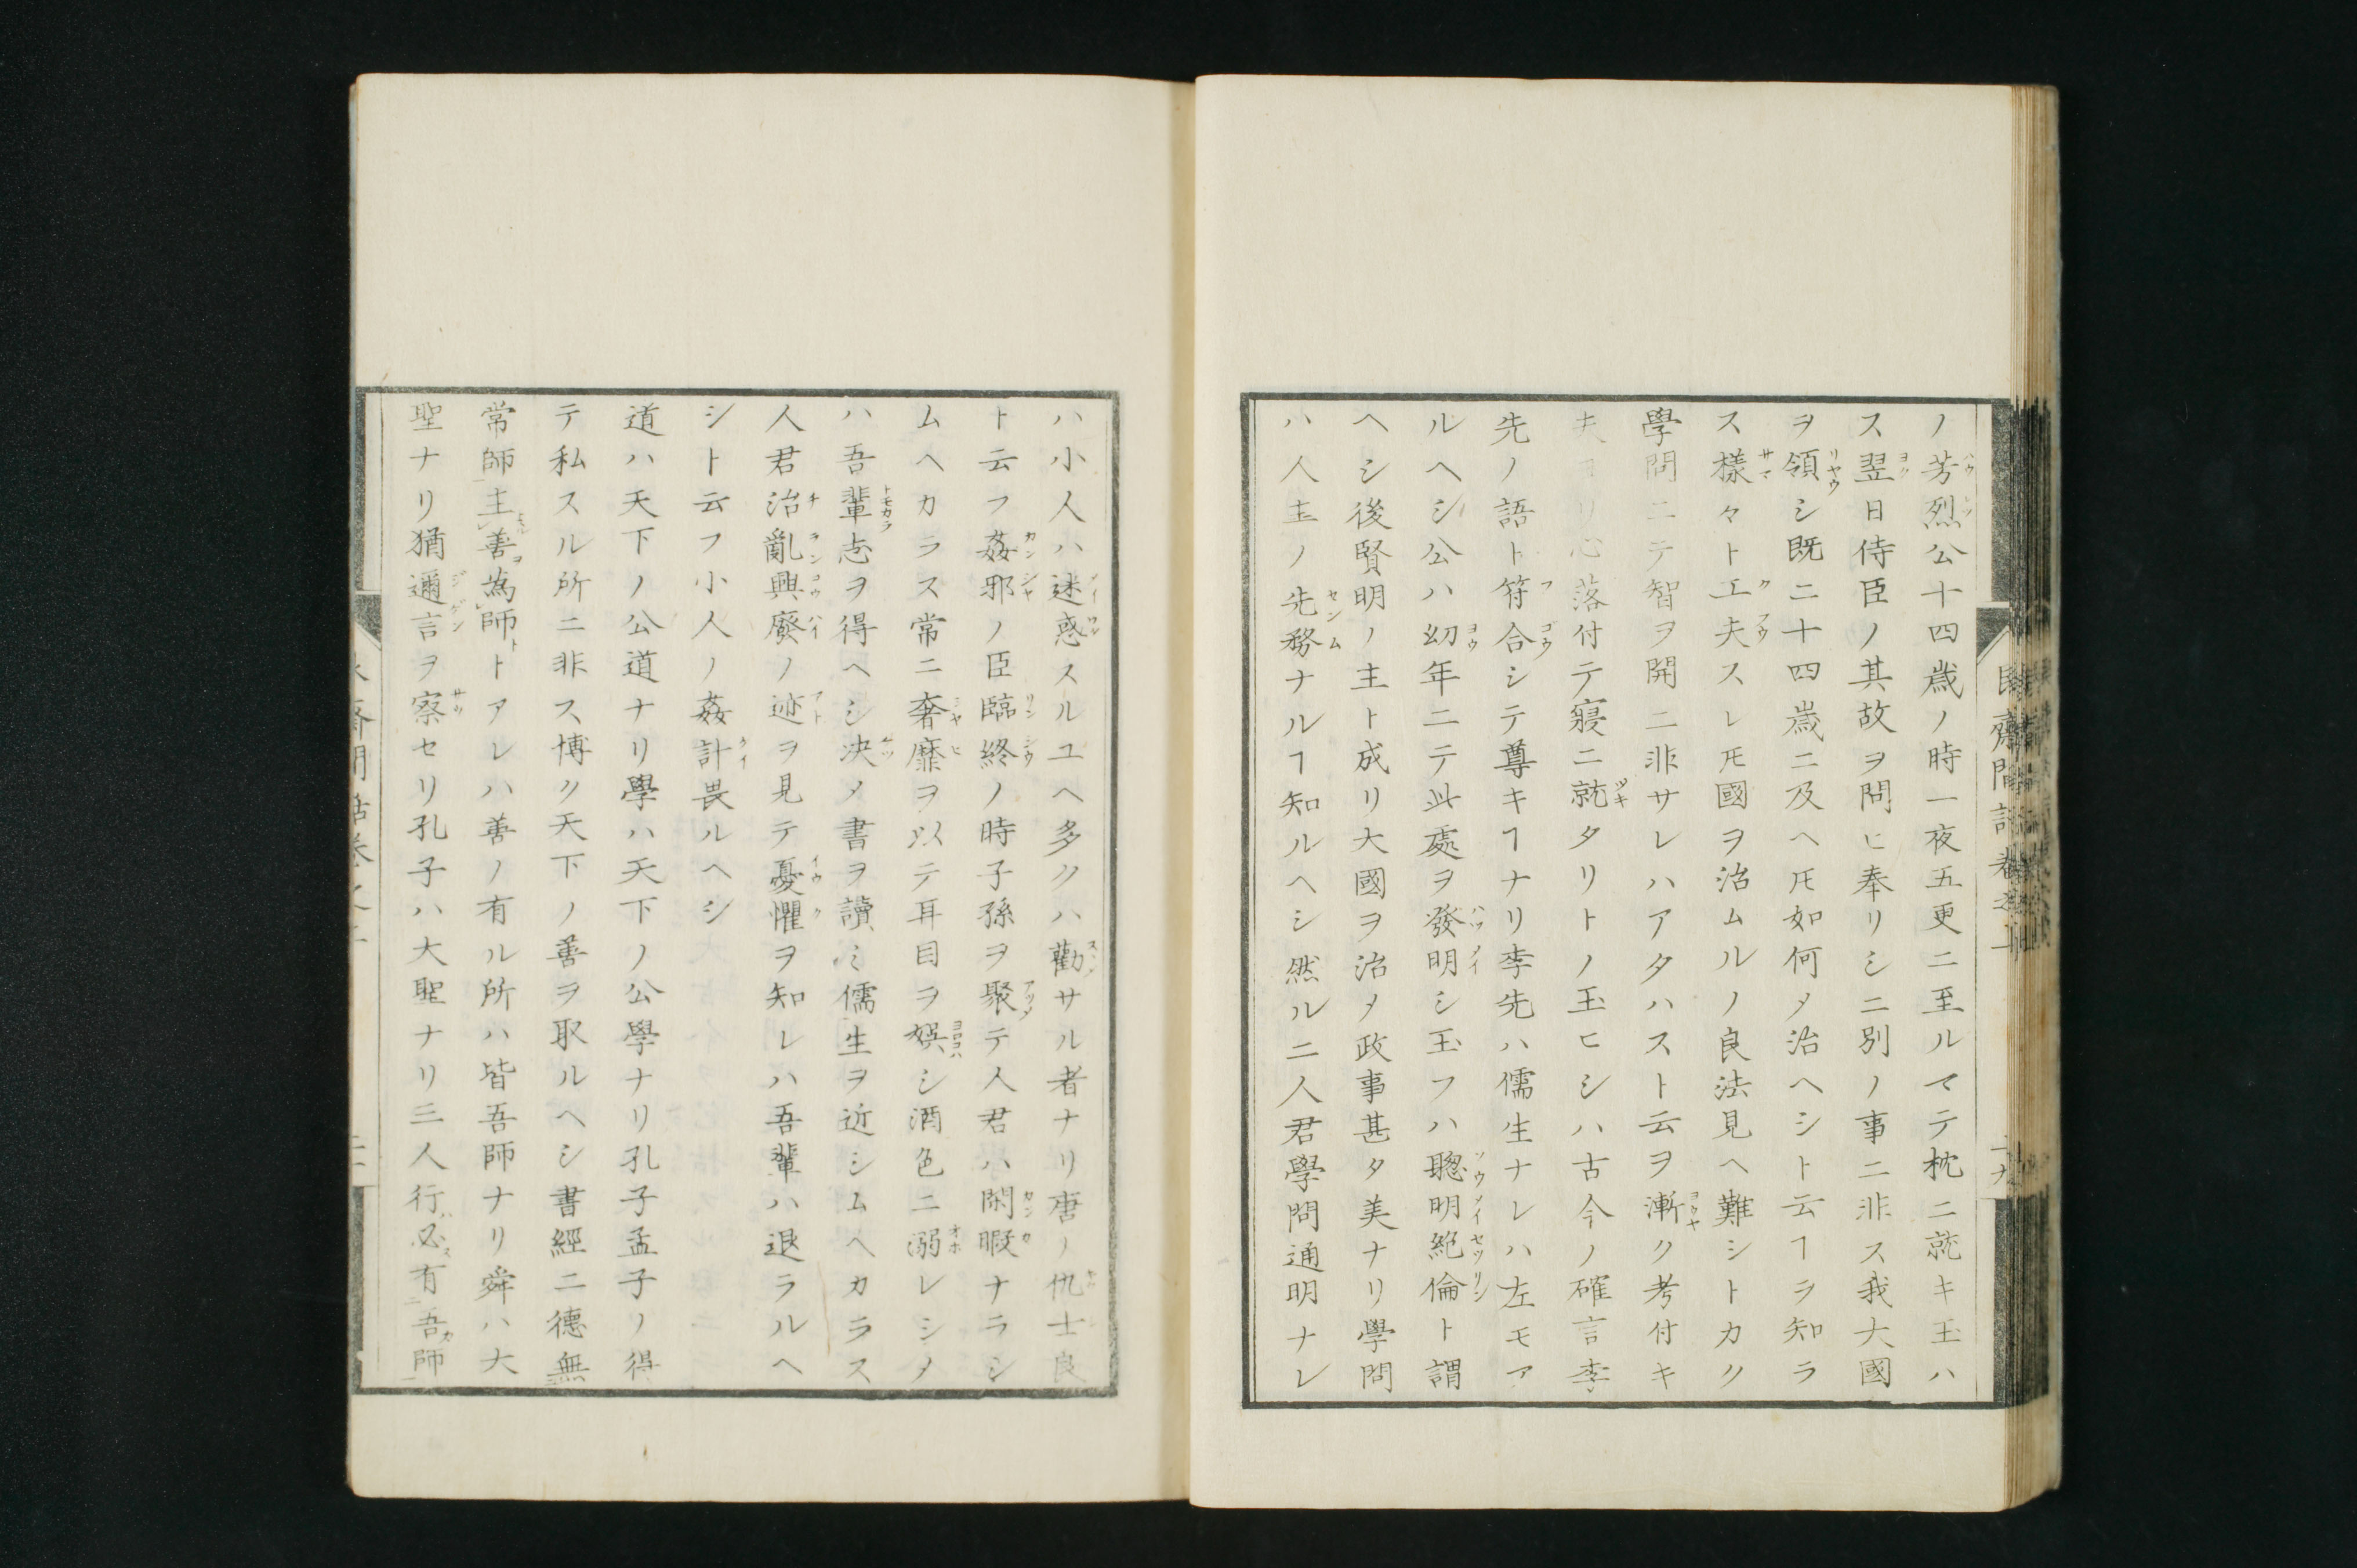 ノ芳烈公十四歳ノ時一夜五更ニ至ルマテ枕ニ就キ玉ハ
ス翌日侍臣ノ其故ヲ問ヒ奉リシニ別ノ事ニ非ス我大國
ヲ領シ既ニ十四歳ニ及ヘ𪜈如何メ治ヘシト云ヿヲ知ラ
ス樣々ト工夫スレ𪜈國ヲ治ムルノ良法見ヘ難シトカク
學問ニテ智ヲ開ニ非サレハアタハスト云ヲ漸ク考付キ
夫ヨリ心落付テ寢ニ就タリトノ玉ヒシハ古今ノ確言李
先ノ語ト符合シテ尊キヿナリ李先ハ儒生ナレハ左モア
ルヘシ公ハ幼年ニテ此處ヲ發明シ玉フハ聰明絶倫ト謂
ヘシ後賢明ノ主ト成リ大國ヲ治メ政事甚タ美ナリ學問
ハ人主ノ先務ナルヿ知ルヘシ然ルニ人君學問通明ナレ
ハ小人ハ迷惑スルユヘ多クハ勸サル者ナリ唐ノ仇士良
ト云フ姦邪ノ臣臨終ノ時子孫ヲ聚テ人君ハ閑暇ナラシ
ムヘカラス常ニ奢靡ヲ以テ耳目ヲ娯シ酒色ニ溺レシメ
ハ吾輩志ヲ得ヘシ决メ書ヲ讀ミ儒生ヲ近シムヘカラス
人君治亂興廢ノ迹ヲ見テ憂懼ヲ知レハ吾輩ハ退ラルヘ
シト云フ小人ノ姦計畏ルヘシ
道ハ天下ノ公道ナリ學ハ天下ノ公學ナリ孔子孟子ノ得
テ私スル所ニ非ス博ク天下ノ善ヲ取ルヘシ書經ニ德無
常師主善為師トアレハ善ノ有ル所ハ皆吾師ナリ舜ハ大
聖ナリ猶邇言ヲ察セリ孔子ハ大聖ナリ三人行必有吾師